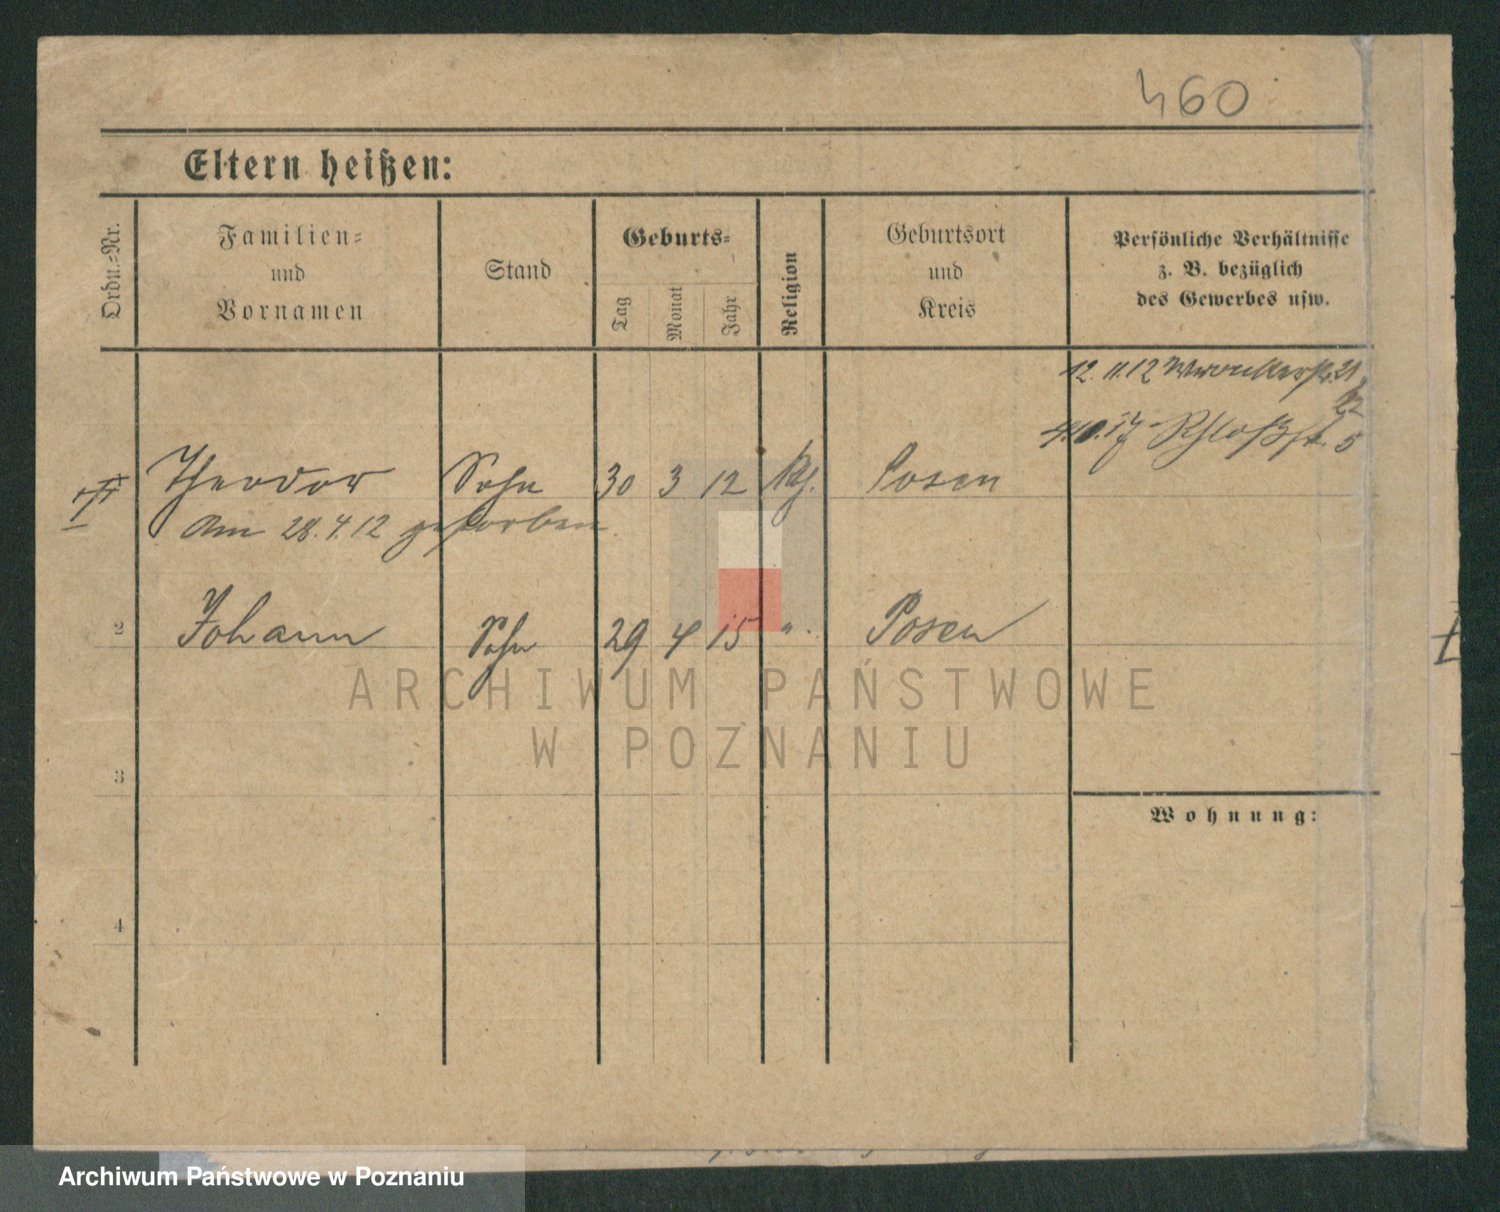 460
Eltern heißen:
Ordn.-Nr.
Familien-
und
Vornamen
Stand
Geburts-
Tag
Monat
Jahr
Religion
Geburtsort
und
Kreis
Persönliche Verhältnisse
z. B. bezüglich
des Gewerbes usw.
12. 11. 12 21
22
4.10.17 Schloßstr. 5
Theodor Sohn 30 3 12 kth. Posen
Am 28.4.12 gestorben
2 Johann Sohn 29 4 15 ". Posen
ARCHIWUM PAŃSTWOWE
W POZNANIU
3
Wohnung:
4
Archiwum Państwowe w Poznaniu